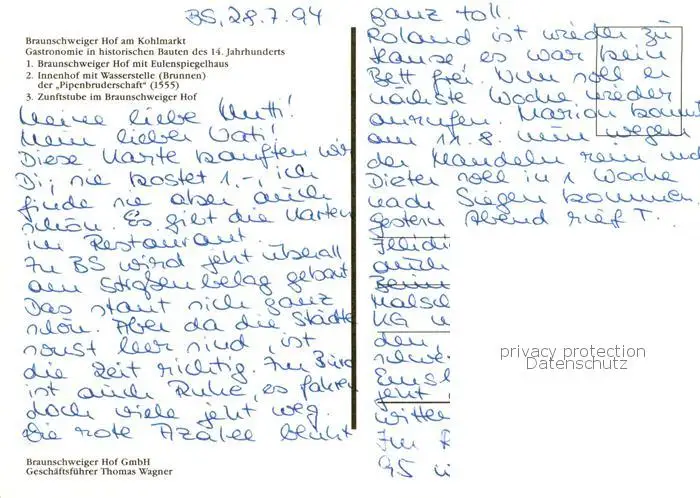 BS, 28.7.94
Braunschweiger Hof am Kohlmarkt
Gastronomie in historischen Bauten des 14. Jahrhunderts
1. Braunschweiger Hof mit Eulenspiegelhaus
2. Innenhof mit Wasserstelle (Brunnen)
der „Pipenbruderschaft" (1555)
3. Zunftstube im Braunschweiger Hof
Meine liebe Mutti!
Mein lieber Vati!
Diese Karte kauften wir
Di, sie kostet 1.-, ich
finde sie aber auch
schön. Es gibt die Karten
im Restaurant.
In BS wird jetzt überall
am Straßenbelag gebaut
Das staut sich ganz
schön. Aber da die Städte
sonst leer sind, ist
die Zeit richtig. Im Büro
ist auch Ruhe, es fahren
doch viele jetzt weg.
Die rote Azalee blüht
Braunschweiger Hof GmbH
Geschäftsführer Thomas Wagner
ganz toll.
Roland ist wieder zu
Hause, es war kein
Bett frei. Nun soll er
nächste Woche wieder
anrufen. Marion kommt
am 11.8. nun wegen
der Mandeln rein und
Dieter soll in 1 Woche
nach Siegen kommen,
gestern Abend rief T.
auch
KG
den
schwe
Ems
jetzt
witte
Im
95
privacy protection
Datenschutz